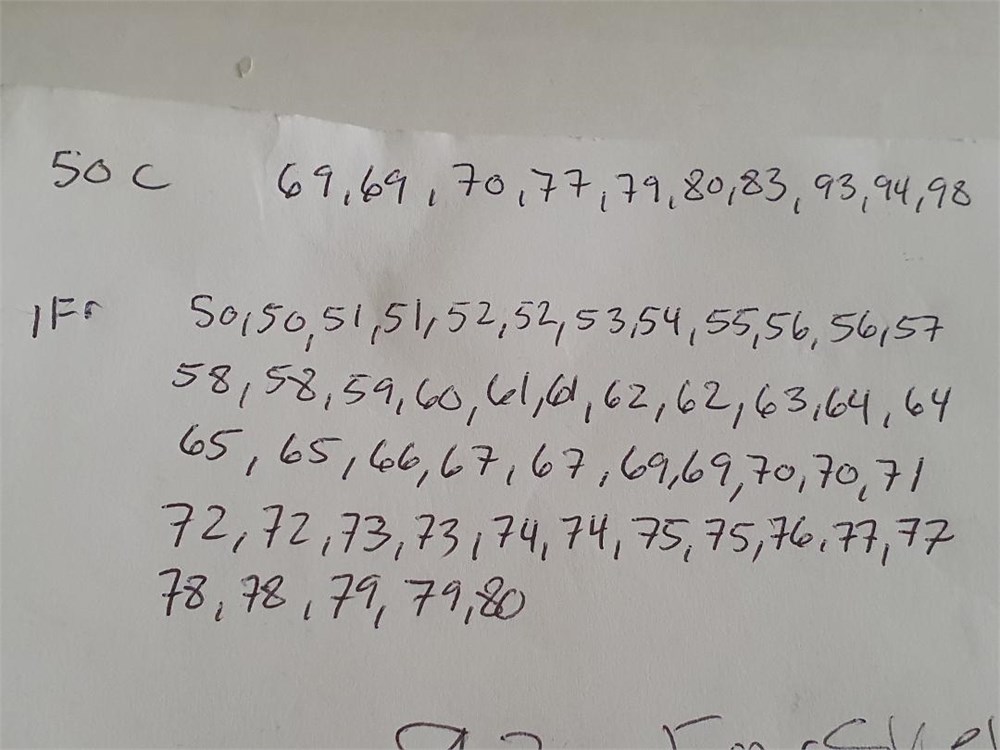 50 C 69,69,70,77,79,80,83,93,94,98
1Fr 50,50,51,51,52,52,53,54,55,56,56,57
58,58,59,60,61,61,62,62,63,64,64
65,65,66,67,67,69,69,70,70,71
72,72,73,73,74,74,75,75,76,77,77
78,78,79,79,80